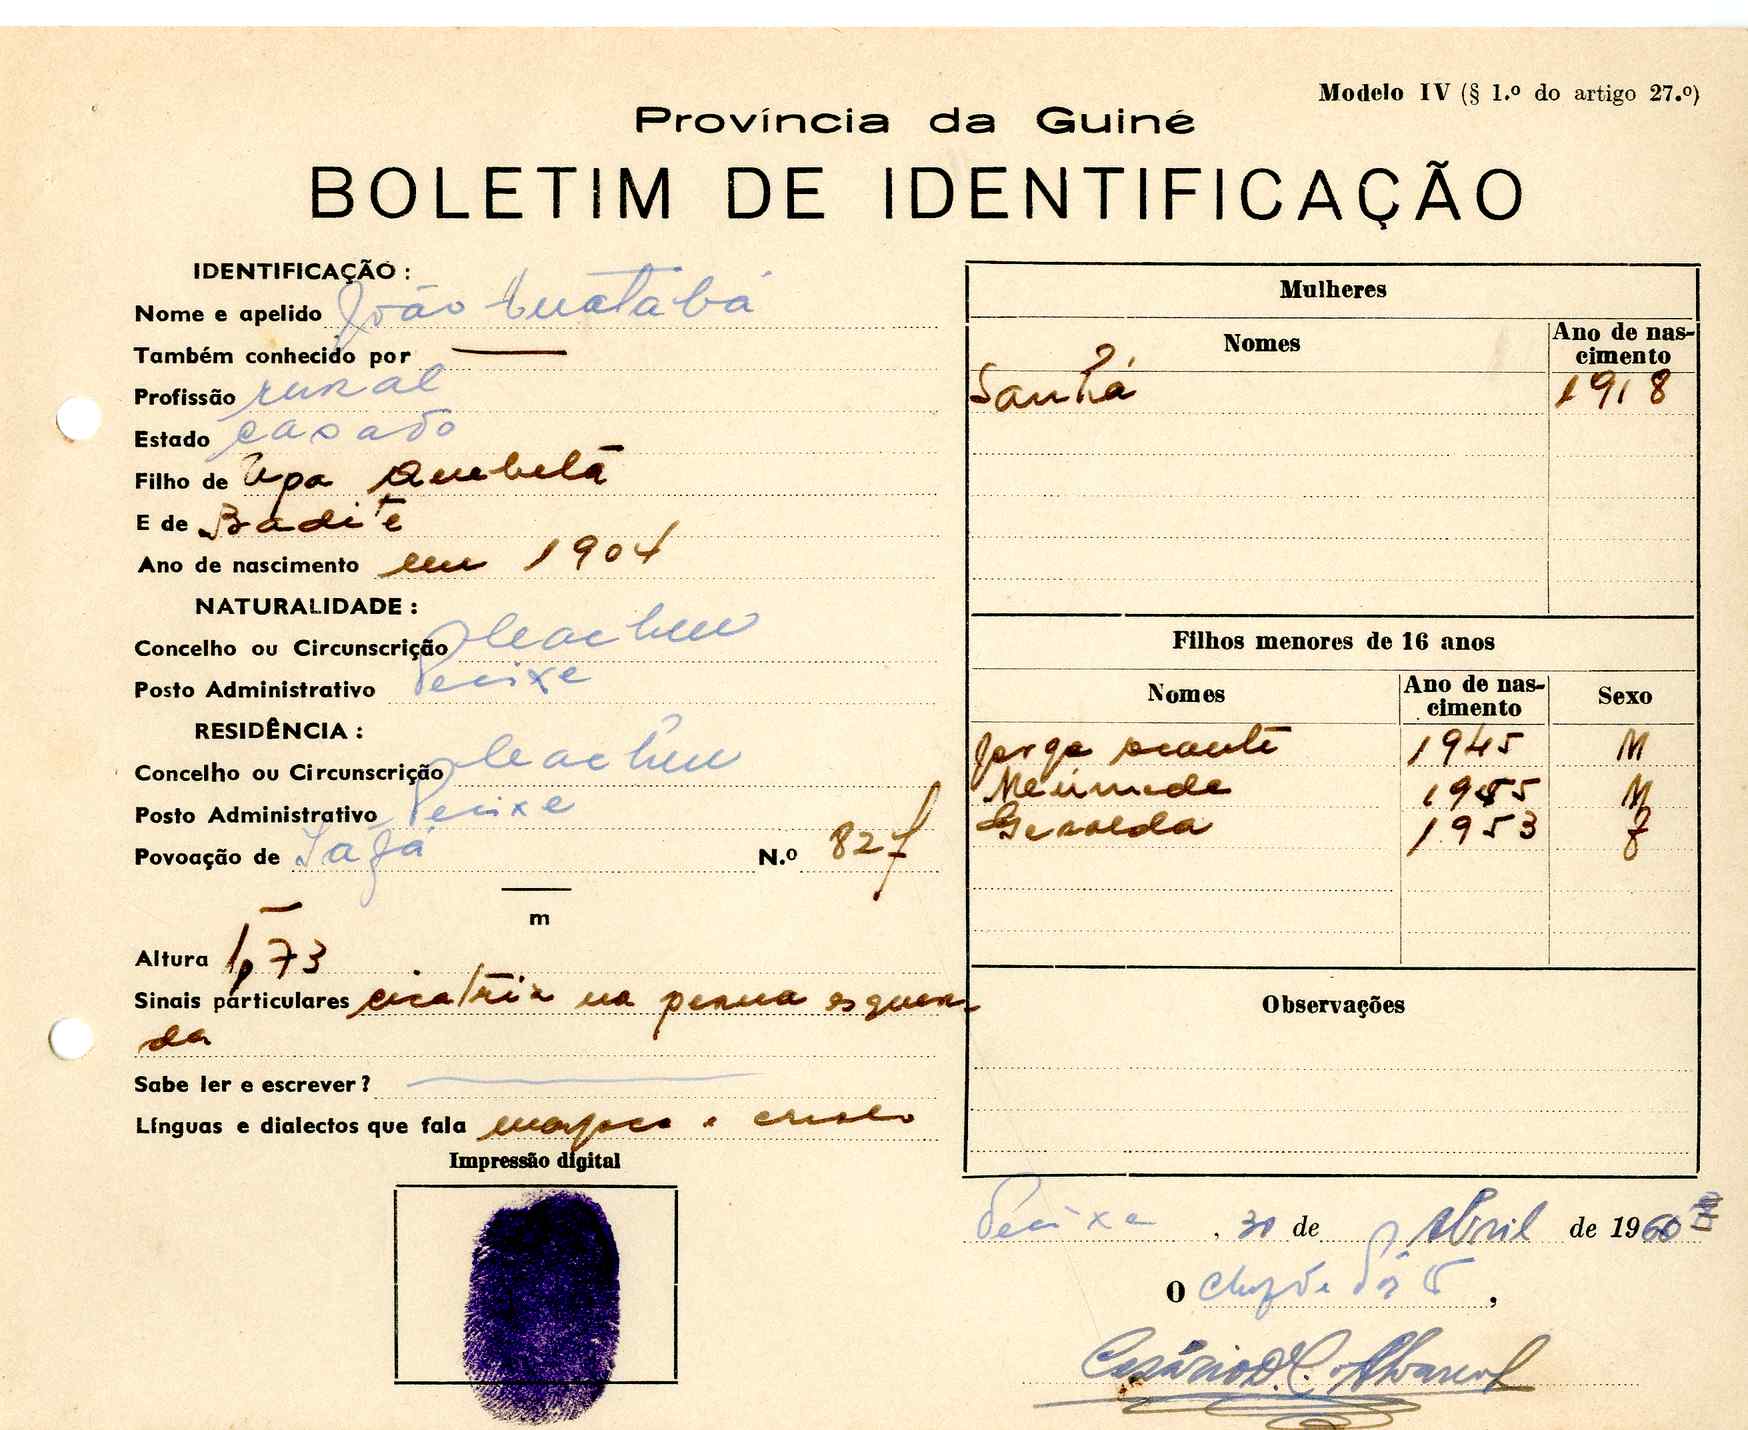 Modelo IV (§ 1.º do artigo 27.º)
Província da Guiné
BOLETIM DE IDENTIFICAÇÃO
IDENTIFICAÇÃO :
Nome e apelido João
Também conhecido por
Profissão rural
Estado casado
Filho de Upa Quebetá
E de Badité
Ano de nascimento em 1904
NATURALIDADE :
Concelho ou Circunscrição Cacheu
Posto Administrativo Pecixe
RESIDÊNCIA :
Concelho ou Circunscrição Cacheu
Posto Administrativo Pecixe
Povoação de N.º 827
m
Altura 1,73
Sinais particulares cicatriz na perna esquer-
da
Sabe ler e escrever ?
Línguas e dialectos que fala manjaco e crioulo
Impressão digital
Mulheres
Nomes
Ano de nas-
cimento
Santá 1918
Filhos menores de 16 anos
Nomes
Ano de nas-
cimento
Sexo
Jorge 1945 M
1955 M
Geralda 1953 F
Observações
Pecixe, 30 de Abril de 1960
O Chefe de Posto,